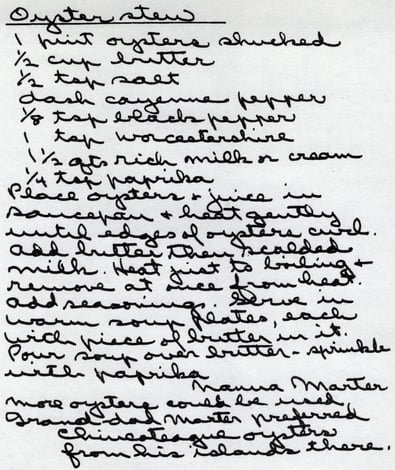 Oyster stew
1 pint oysters shucked
1/2 cup butter
1/2 tsp salt
dash cayenne pepper
1/8 tsp black pepper
1 tsp worcestershire
1 1/2 qts rich milk or cream
1/4 tsp paprika
Place oysters & juice in
saucepan & heat gently
until edges of oysters curl.
Add butter then scalded
milk. Heat just to boiling &
remove at once from heat.
Add seasoning. Serve in
warm soup plates, each
with piece of butter in it.
Pour soup over butter - sprinkle
with paprika
Nanna Marter
more oysters could be used,
Grand-dad Marter preferred
Chincoteague oysters
from his islands there.